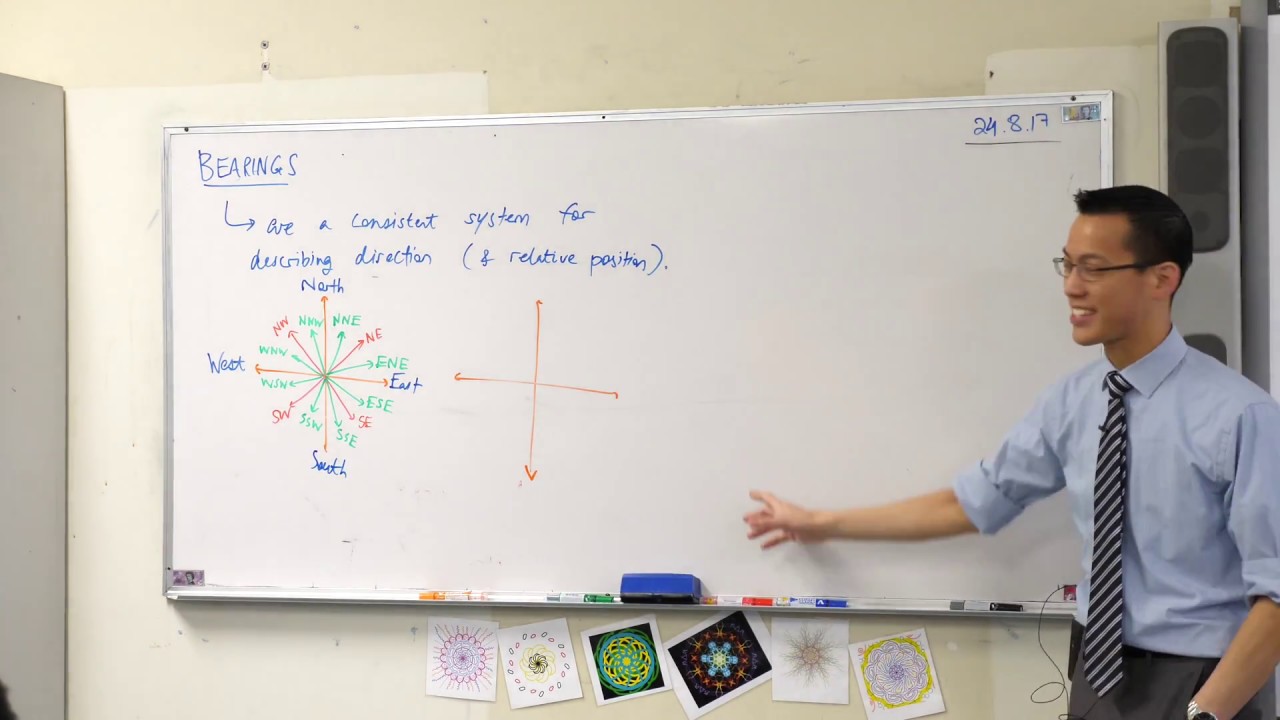 24.8.17
BEARINGS
↳ are a consistent system for
describing direction (& relative position).
North
NW NNW NNE NE
WNW ENE
West East
WSW ESE
SW SSW SSE SE
South